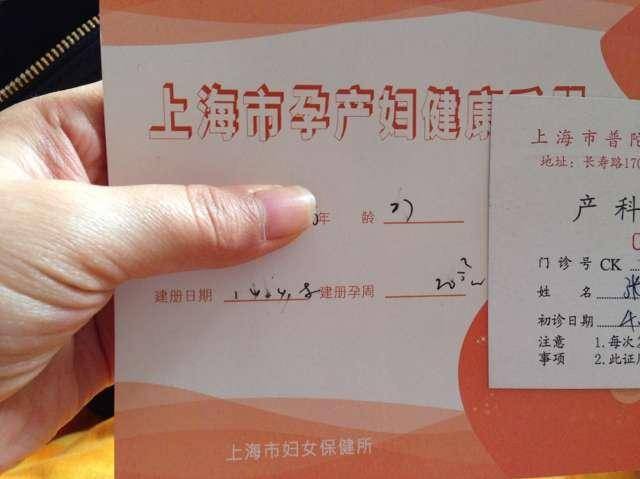 上海市孕产妇健康手册
年 龄 27
建册日期 建册孕周 20
上海市妇女保健所
上海市普陀
地址：长寿路170
产科
门诊号 CK
姓 名 张
初诊日期 4.
注意 1.每次
事项 2.此证